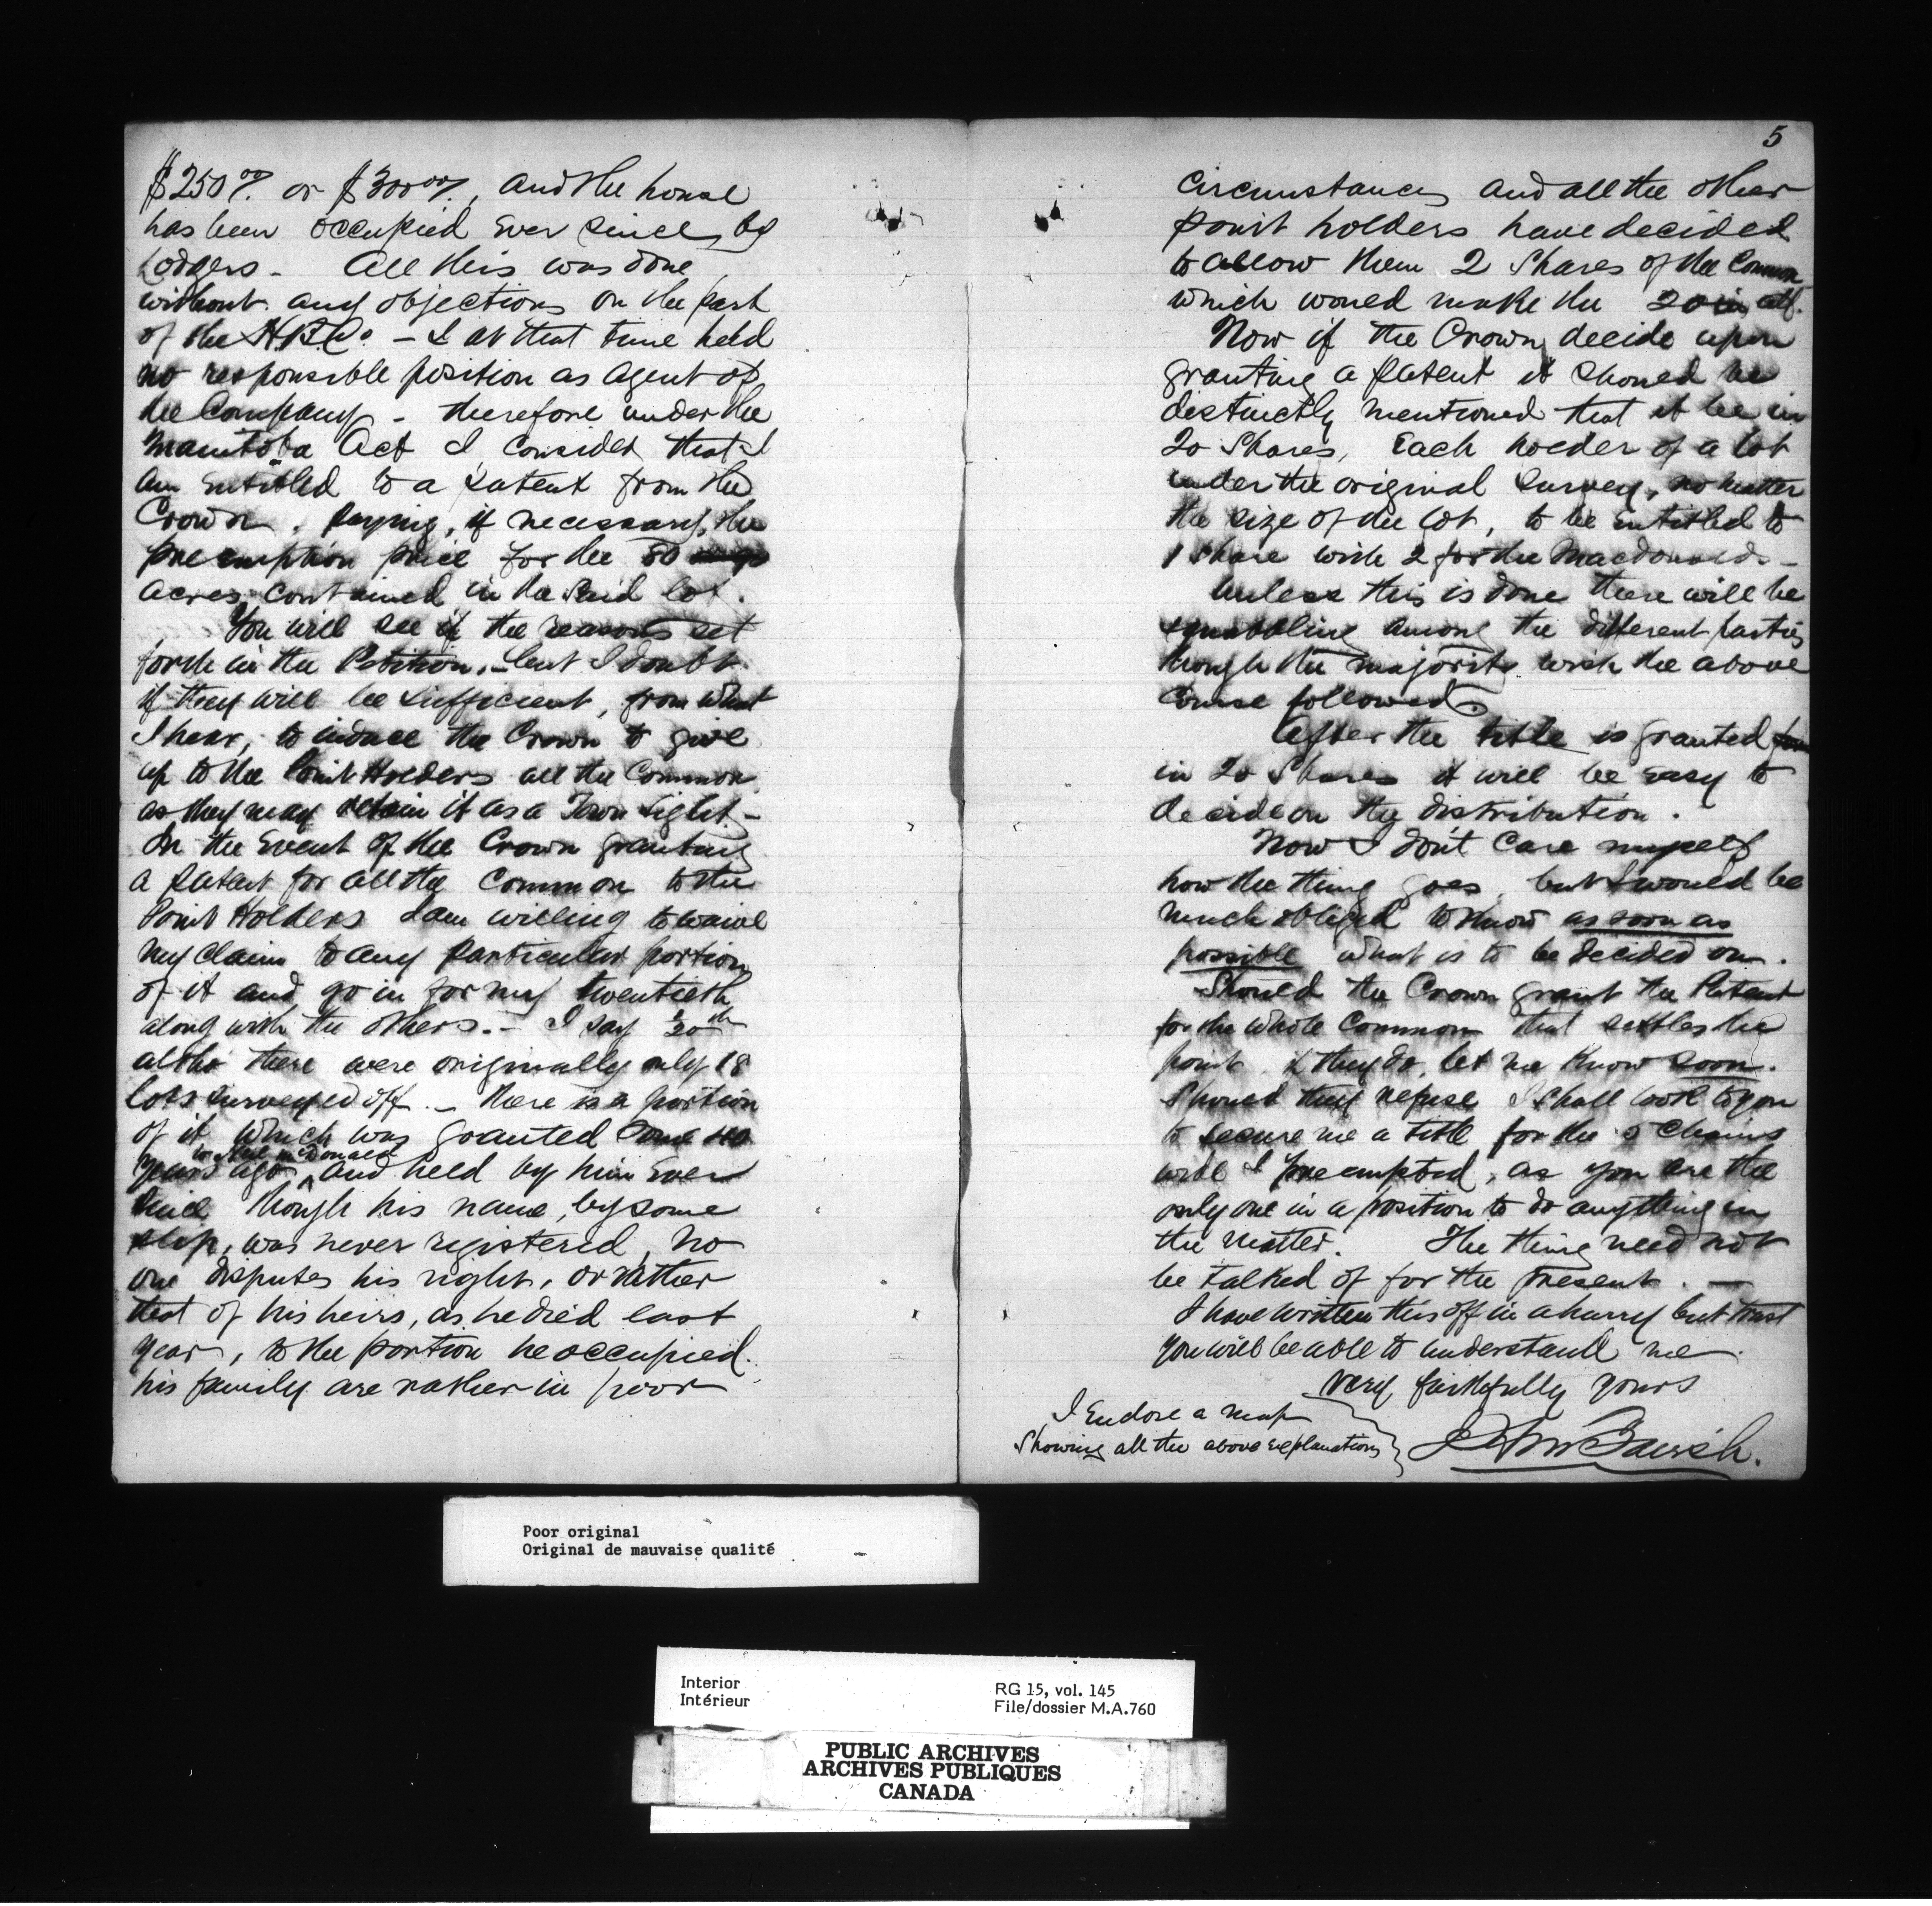 $250 00/. or $300 00/., and the house
has been occupied ever since by
Lodgers - All this was done
without any objections on the part
of the H.B.Co - I at that time held
no responsible position as agent of
the Company - therefore under the
Manitoba Act I consider that I
am entitled to a patent from the
Crown. paying, if necessary, the
preemption price for the 80
acres contained in the said lot.
You will see if the reasons set
forth in the Petition, - but I doubt
if they will be sufficient, from what
I hear, to induce the Crown to give
up to the Point Holders all the Common
as they may retain it as a Town Sight -
In the event of the Crown granting
a patent for all the Common to the
Point Holders I am willing to waive
my claim to any particular portion
of it and go in for my twentieth
along with the others. - I say 1/20th
altho' there were originally only 18
lots surveyed off - there is a portion
of it, which was granted some
years ago, and held by him ever
to McDonald
since though his name, by some
slip, was never registered, no
one disputes his right, or rather
that of his heirs, as he died last
year, to the portion he occupied.
his family are rather in poor
5
circumstances and all the other
point holders have decided
to allow them 2 Shares of the Common
which would make the 20 in all.
Now if the Crown decide upon
granting a patent it should be
distinctly mentioned that it be in
20 Shares, Each holder of a lot
under the original Survey, no matter
the size of the lot, to be entitled to
1 Share with 2 for the Macdonalds -
Unless this is done there will be
squabbling among the different parties
though the majority wish the above
course followed.
After the title is granted
in 20 Shares it will be easy to
decide on the distribution.
Now I don't care myself
how the thing goes, but I would be
much obliged to know as soon as
possible what is to be decided on.
Should the Crown grant the Patent
for the whole Common that settles the
point. if they do, let me know soon.
Should they refuse I shall look to you
to secure me a title for the 5 chains
I preempted, as you are the
only one in a position to do anything in
the matter. The thing need not
be talked of for the present. -
I have written this off in a hurry but trust
you will be able to understand me
Very faithfully yours
I Enclose a map
Showing all the above explanations
Poor original
Original de mauvaise qualité
Interior
Intérieur
RG 15, vol. 145
File/dossier M.A.760
PUBLIC ARCHIVES
ARCHIVES PUBLIQUES
CANADA